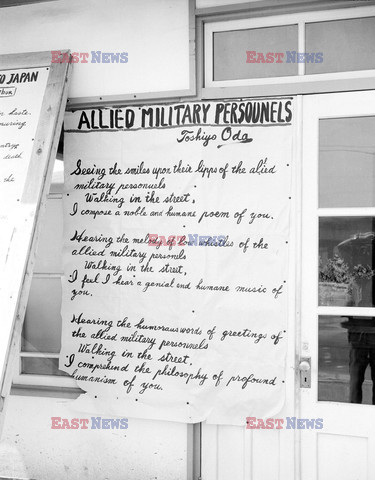 O JAPAN
ALLIED MILITARY PERSOUNELS
Toshiyo Oda
Seeing the smiles upon their lipps of the alied
military personuels
Walking in the street,
I compose a noble and humane poem of you.
Hearing the melody of low whistles of the
allied military personels
Walking in the street,
I feel I hear a genial and humane music of
you.
Hearing the humoraus words of greetings of
the allied military persounels
Walking in the street,
I comprehend the philosophy of profound
humanism of you.
EASTNEWS
EASTNEWS
EASTNEWS
EASTNEWS
EASTNEWS
EASTNEWS